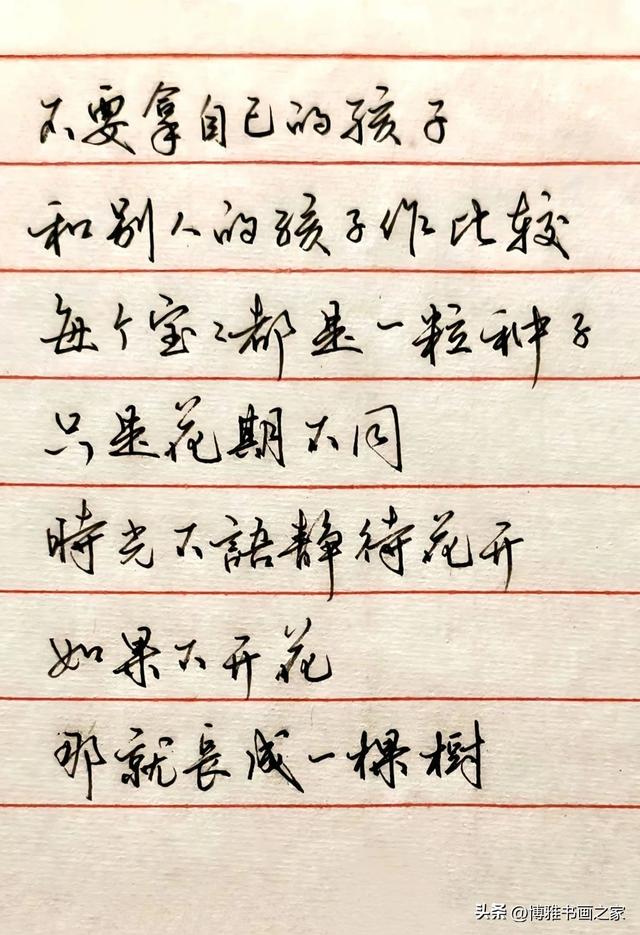 不要拿自己的孩子
和别人的孩子作比较
每个宝々都是一粒种子
只是花期不同
時光不語静待花开
如果不开花
那就長成一棵樹
头条 @博雅书画之家